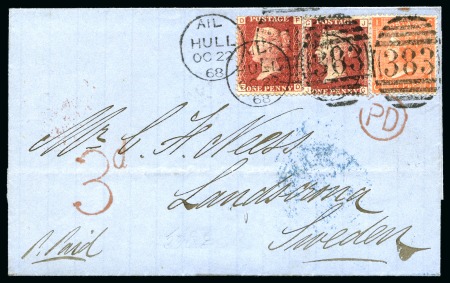 AIL
HULL
OC 22
68
POSTAGE
ONE PENNY
POSTAGE
ONE PENNY
383
383
68
PD
Mr. C. H. Neess
3d
Landscrona
Sweden
p. Paid